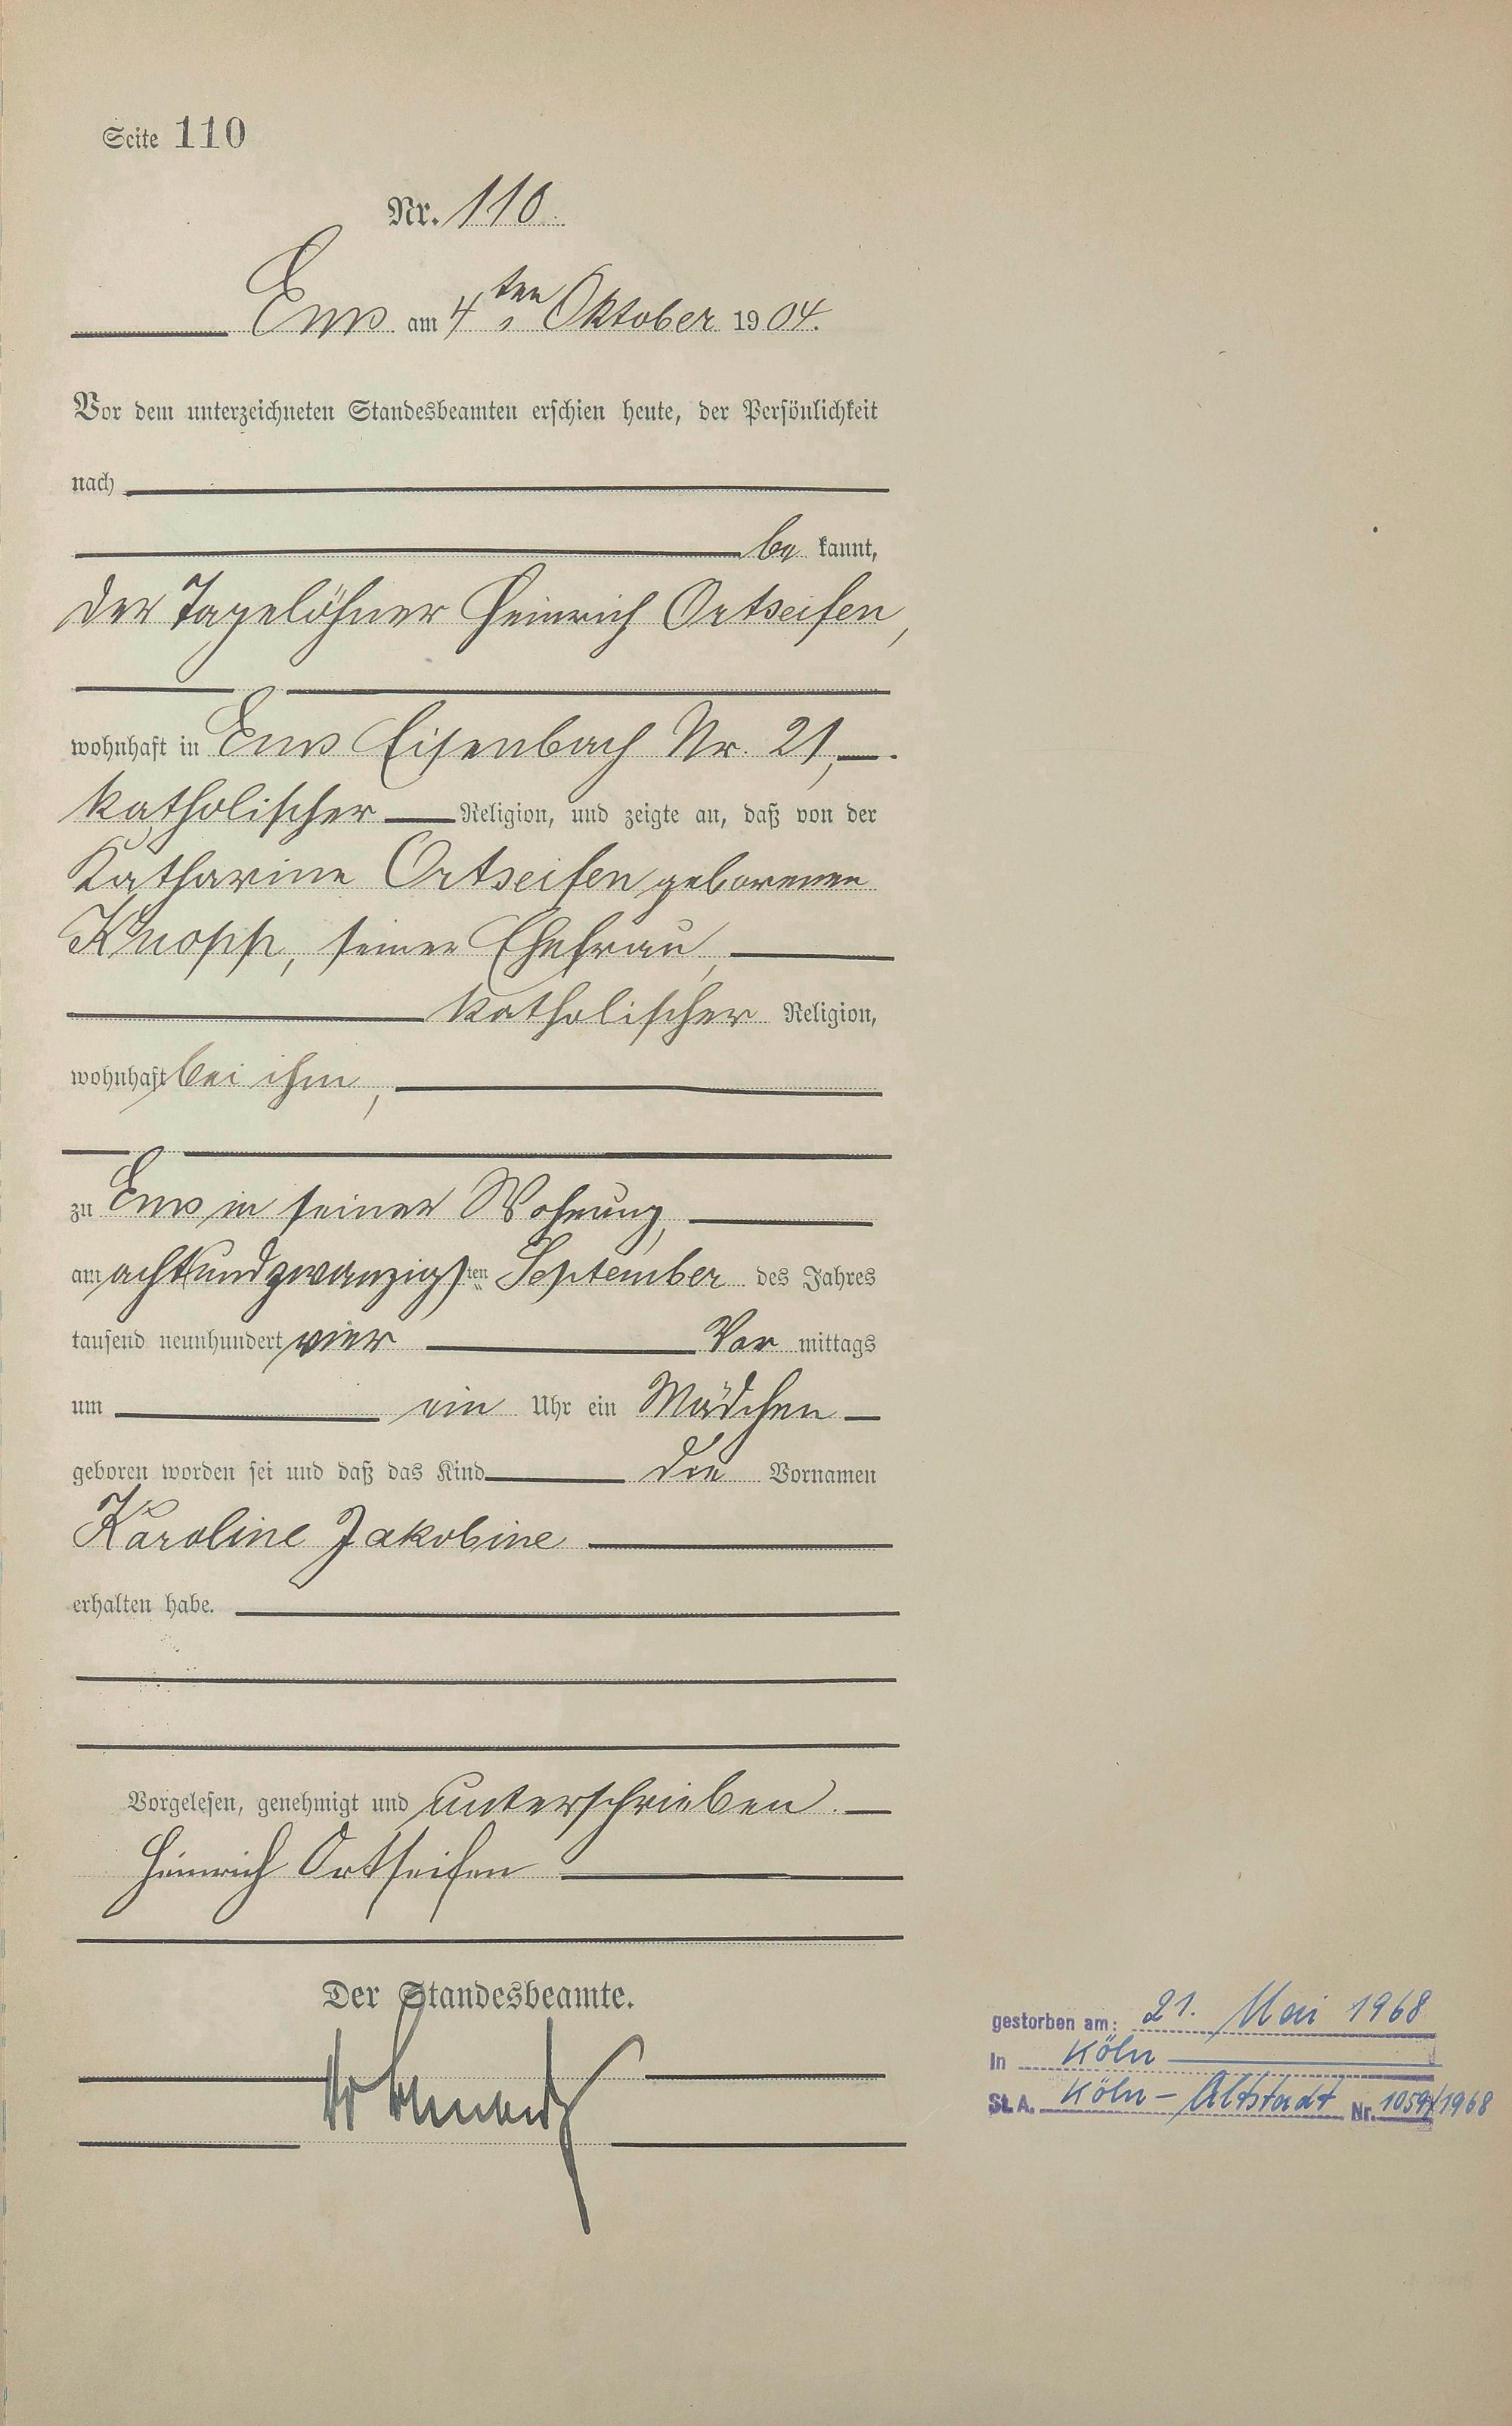 Seite 110
Nr. 110.
Ems am 4ten Oktober 1904.
Vor dem unterzeichneten Standesbeamten erschien heute, der Persönlichkeit
nach
be kannt,
der Tagelöhner Heinrich Ortseifen,
wohnhaft in Ems Eisenbach Nr. 21,
katholischer Religion, und zeigte an, daß von der
Katharine Ortseifen geborenen
Knopp, seiner Ehefrau,
katholischer Religion,
wohnhaft bei ihm,
zu Ems in seiner Wohnung,
am achtundzwanzigsten September des Jahres
tausend neunhundert vier Vor mittags
um ein Uhr ein Mädchen
geboren worden sei und daß das Kind die Vornamen
Karoline Jakobine
erhalten habe.
Vorgelesen, genehmigt und unterschrieben.
Heinrich Ortseifen
Der Standesbeamte.
gestorben am: 21. Mai 1968
In Köln
St.A. Köln - Altstadt Nr. 1059/1968